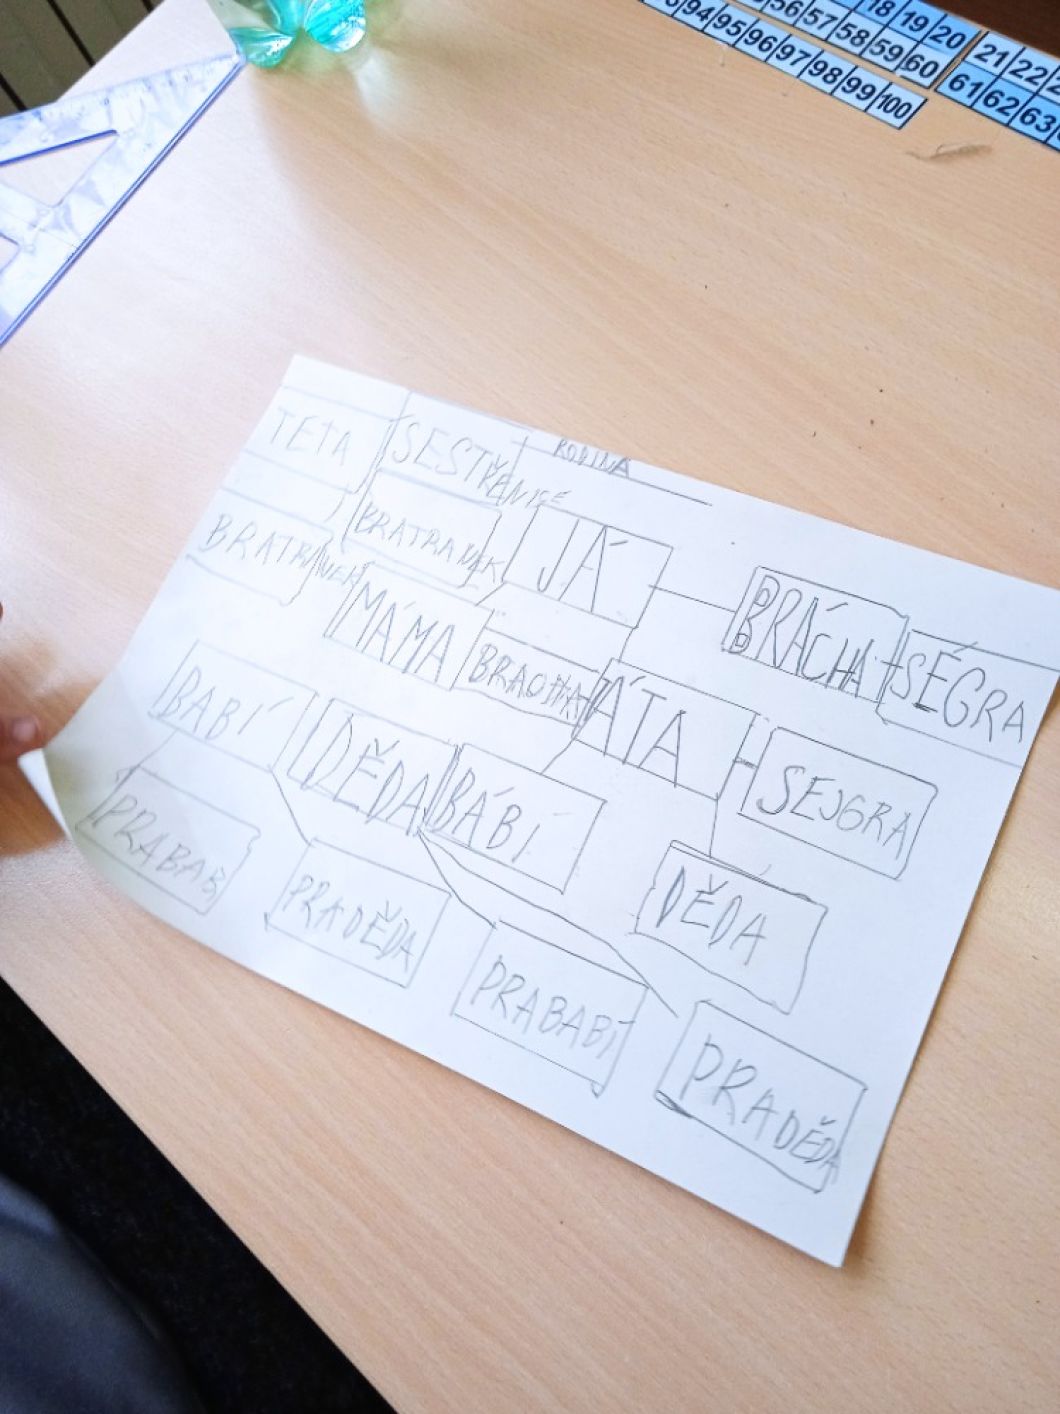 18 19 20
56 57 58 59 60
94 95 96 97 98 99 100
21 22
61 62 63
RODINA
TETA
SESTŘENICE
BRATRANEK
BRATRANEK
JÁ
BRÁCHA
SÉGRA
MÁMA
BRÁCHA
TÁTA
SEJGRA
BABÍ
DĚDA
BÁBÍ
DĚDÁ
PRABAB
PRADĚDA
PRABABÍ
PRADĚDA